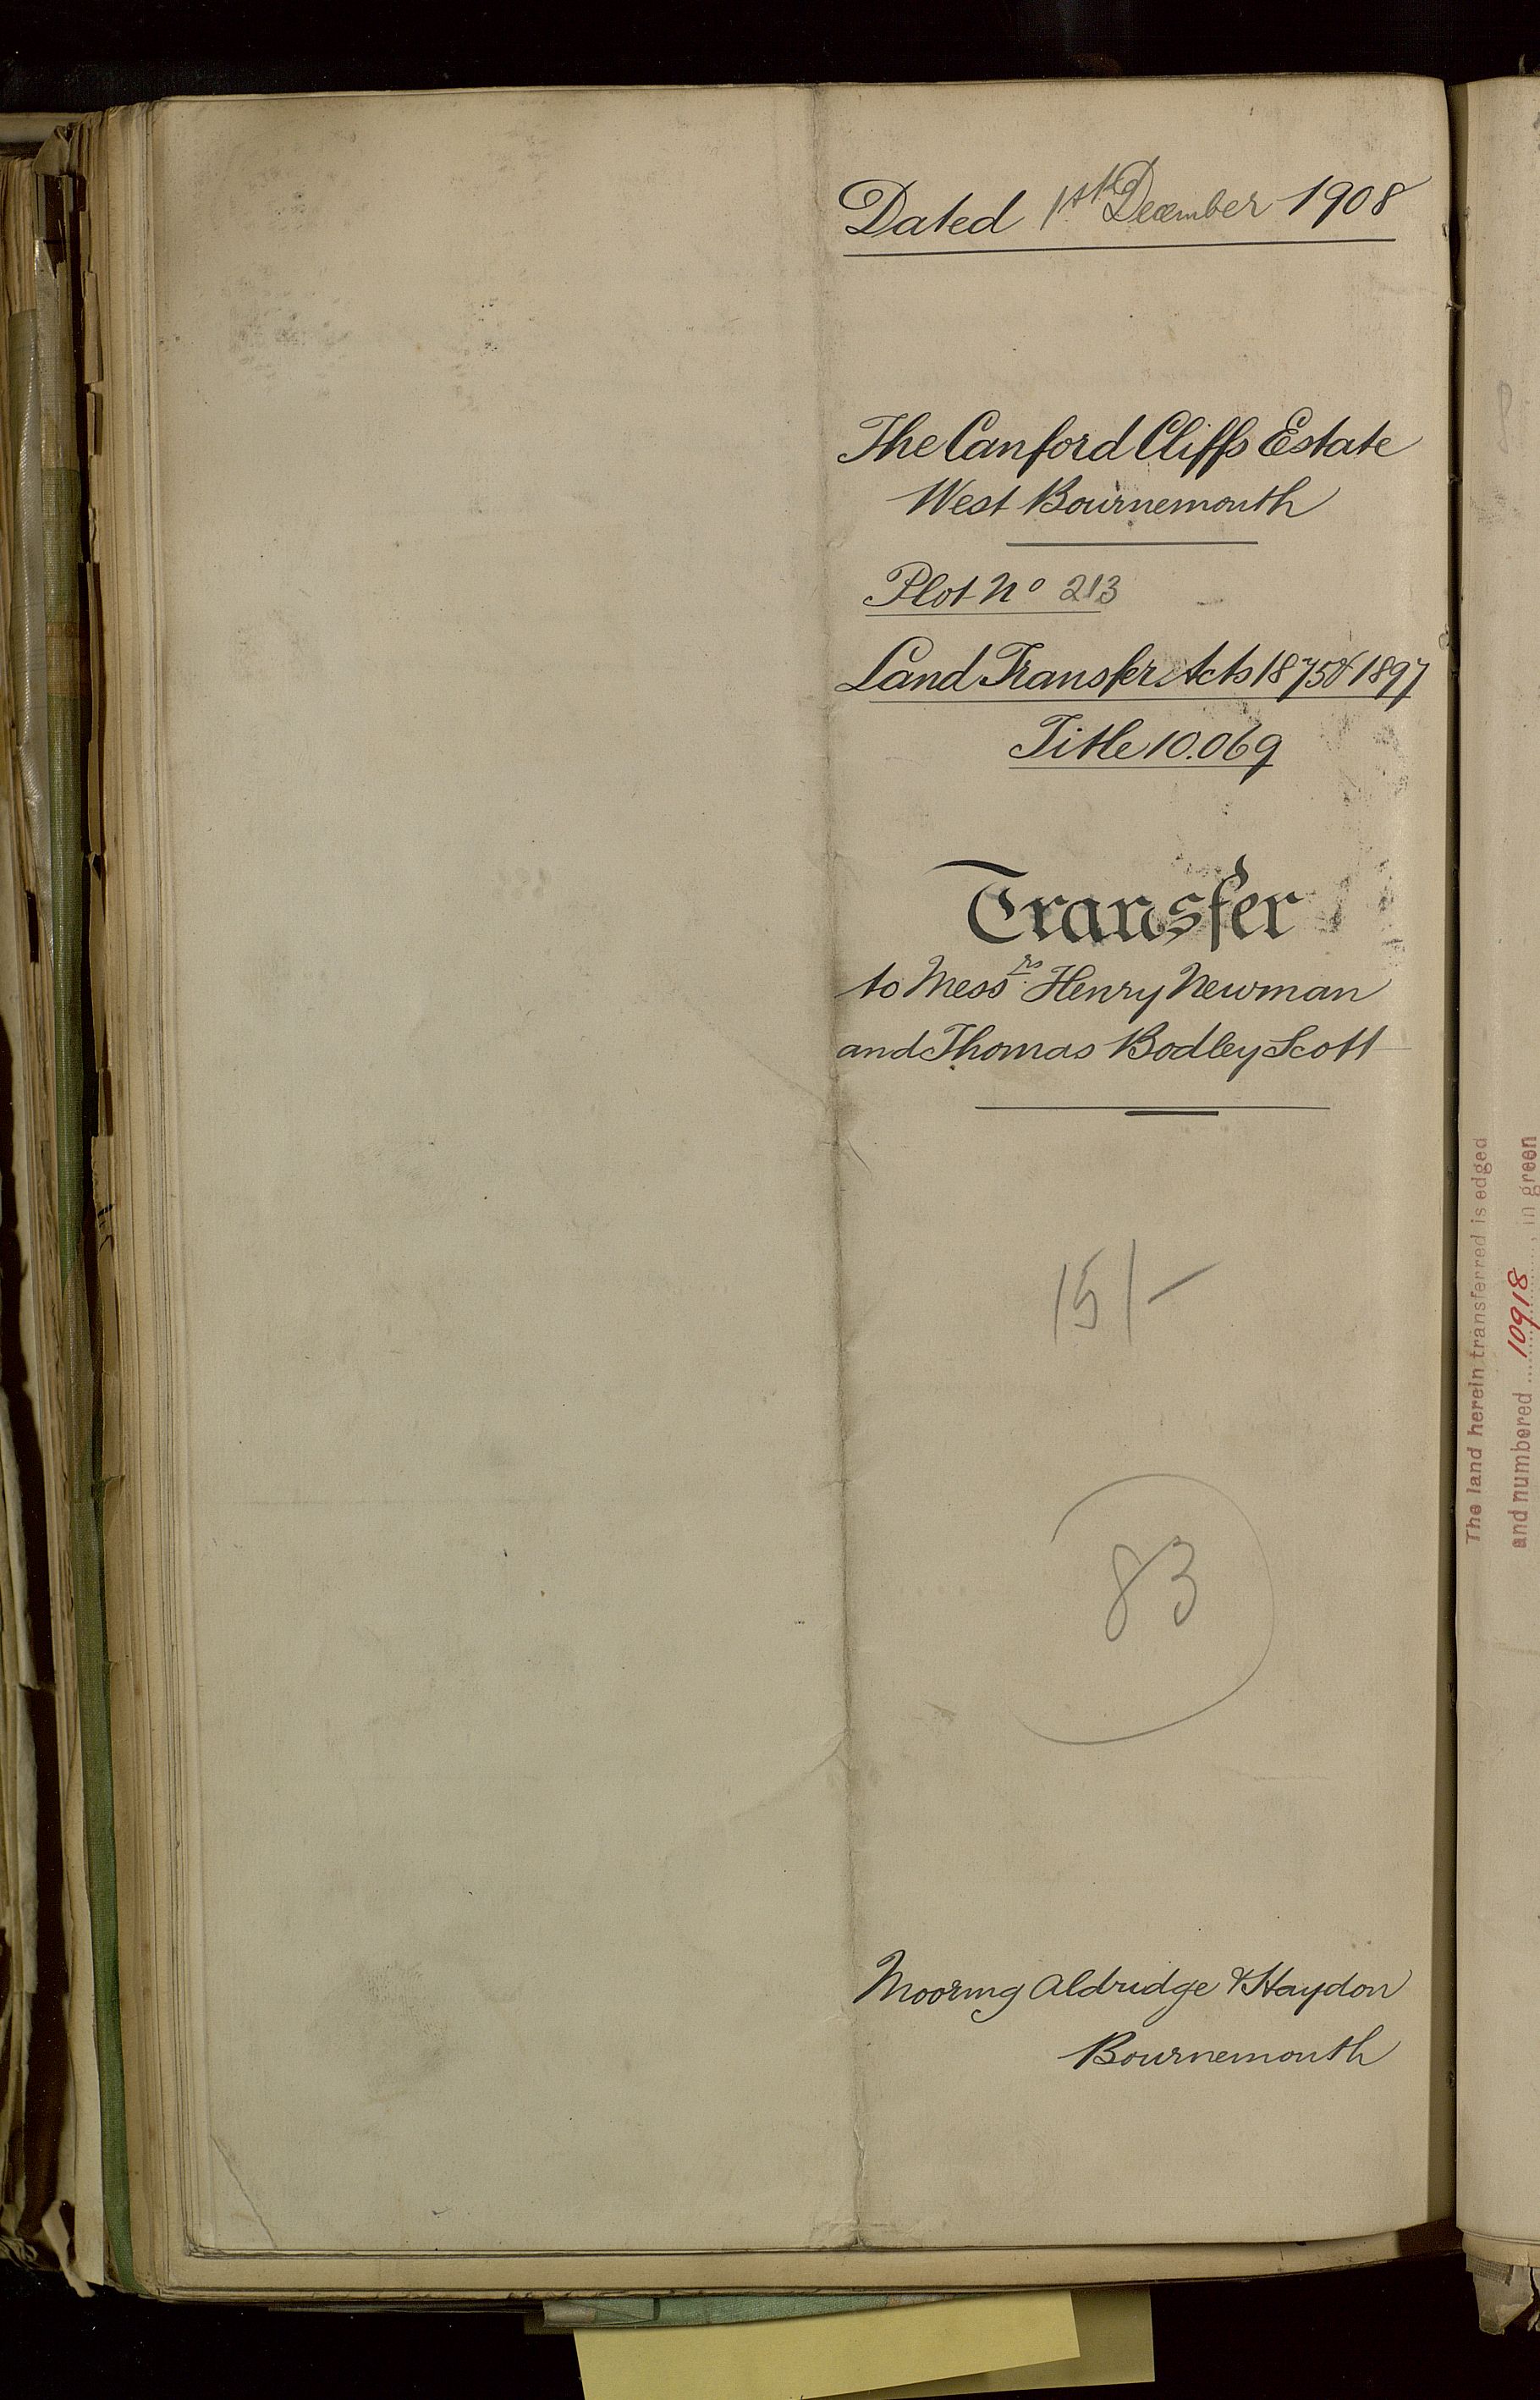 Dated 1st December 1908
The Canford Cliffs Estate
West Bournemouth
Plot No 213
Land Transfer Acts 1875 & 1897
Title 10.069
Transfer
to Messrs Henry Newman
and Thomas Bodley Scott
15/-
83
Mooring Aldridge & Haydon
Bournemouth
The land herein transferred is edged
and numbered 10918, in green